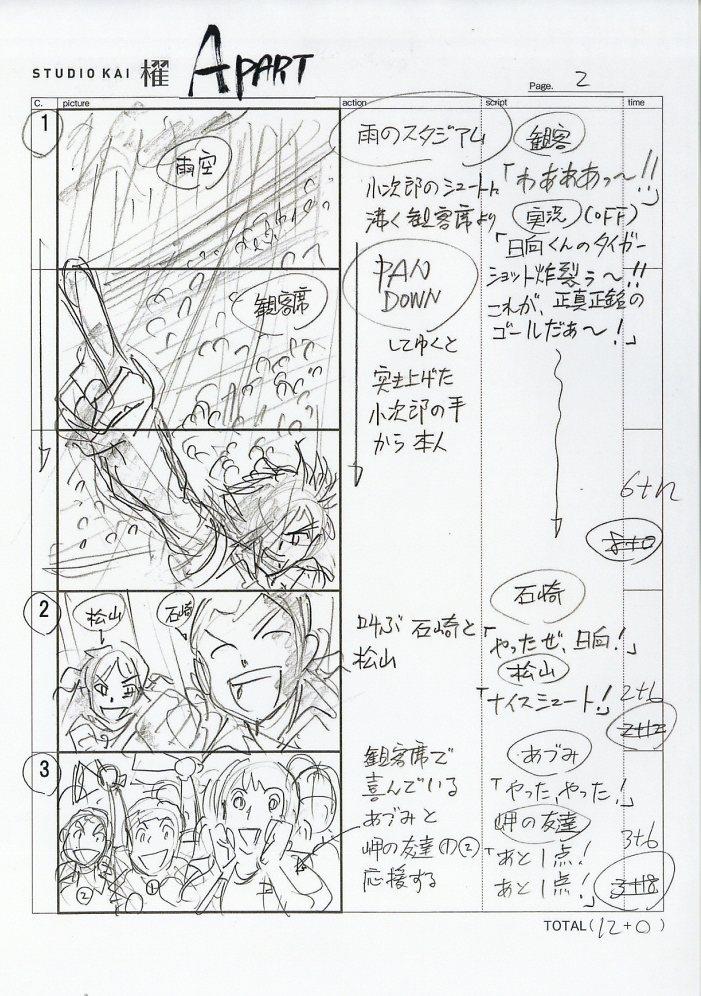 STUDIO KAI 櫂
A PART
Page. 2
C. picture action script time
1
雨空
観客席
雨のスタジアム
小次郎のシュートに
沸く観客席より
PAN
DOWN
してゆくと
突き上げた
小次郎の手
から本人
観客
「わあああっ〜!!」
実況 (OFF)
「日向くんのタイガー
ショット炸裂ぅ〜!!
これが、正真正銘の
ゴールだぁ〜!」
6+12
8+0
2
松山
石崎
叫ぶ石崎と
松山
石崎
「やったぜ、日向!」
松山
「ナイスシュート!」
2+6
2+12
3
②
①
観客席で
喜んでいる
あづみと
岬の友達①②
応援する
あづみ
「やった、やった!」
岬の友達
「あと1点!
あと1点!」
3+6
3+18
TOTAL(12+0)